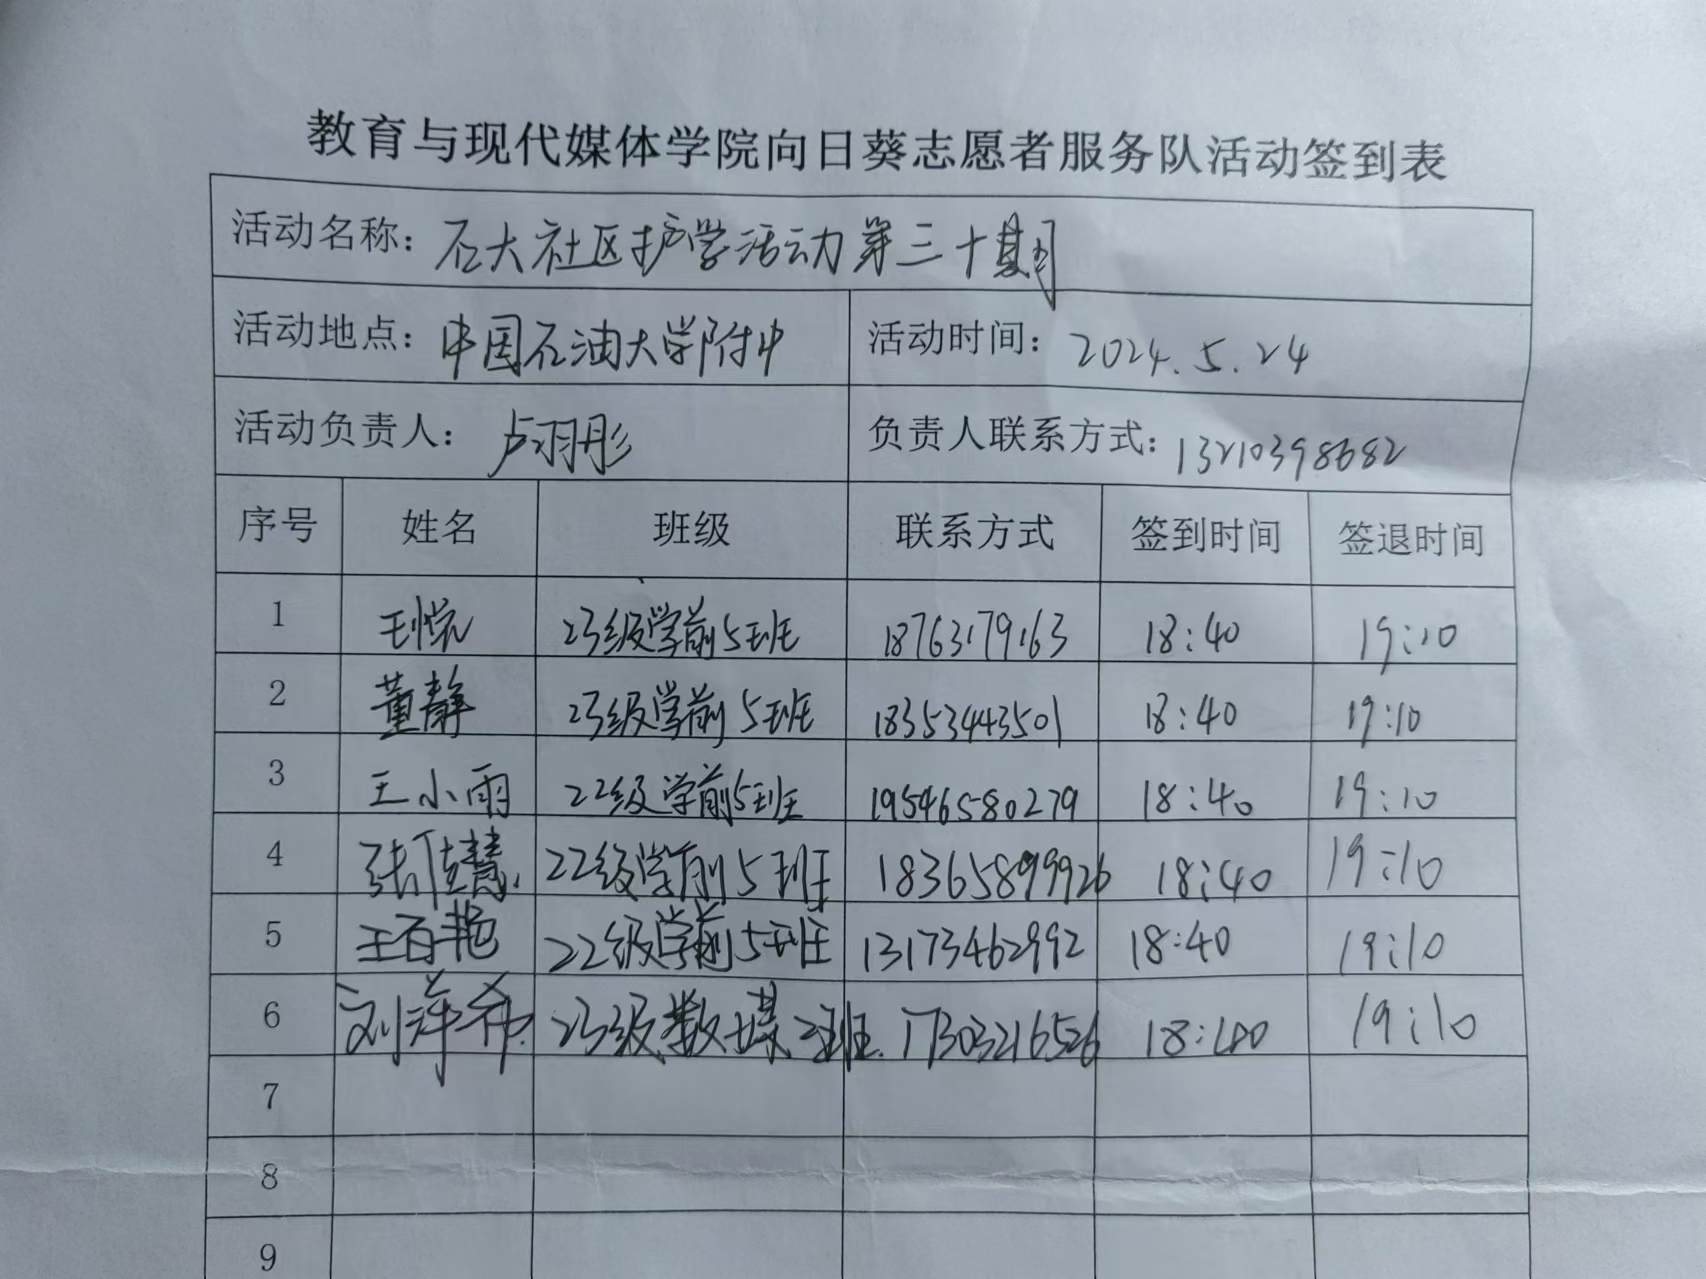 教育与现代媒体学院向日葵志愿者服务队活动签到表
活动名称：石大社区护学活动第三十期
活动地点：中国石油大学附中 活动时间：2024.5.24
活动负责人：卢羽彤 负责人联系方式：13210398682
序号 姓名 班级 联系方式 签到时间 签退时间
1 王悦 23级学前5班 18763179163 18:40 19:10
2 董静 23级学前5班 18353443501 18:40 19:10
3 王小雨 22级学前5班 19546580279 18:40 19:10
4 张佳慧 22级学前5班 18365899926 18:40 19:10
5 王百艳 22级学前5班 13173462992 18:40 19:10
6 刘萍希 23级数媒二班 17303216526 18:40 19:10
7
8
9